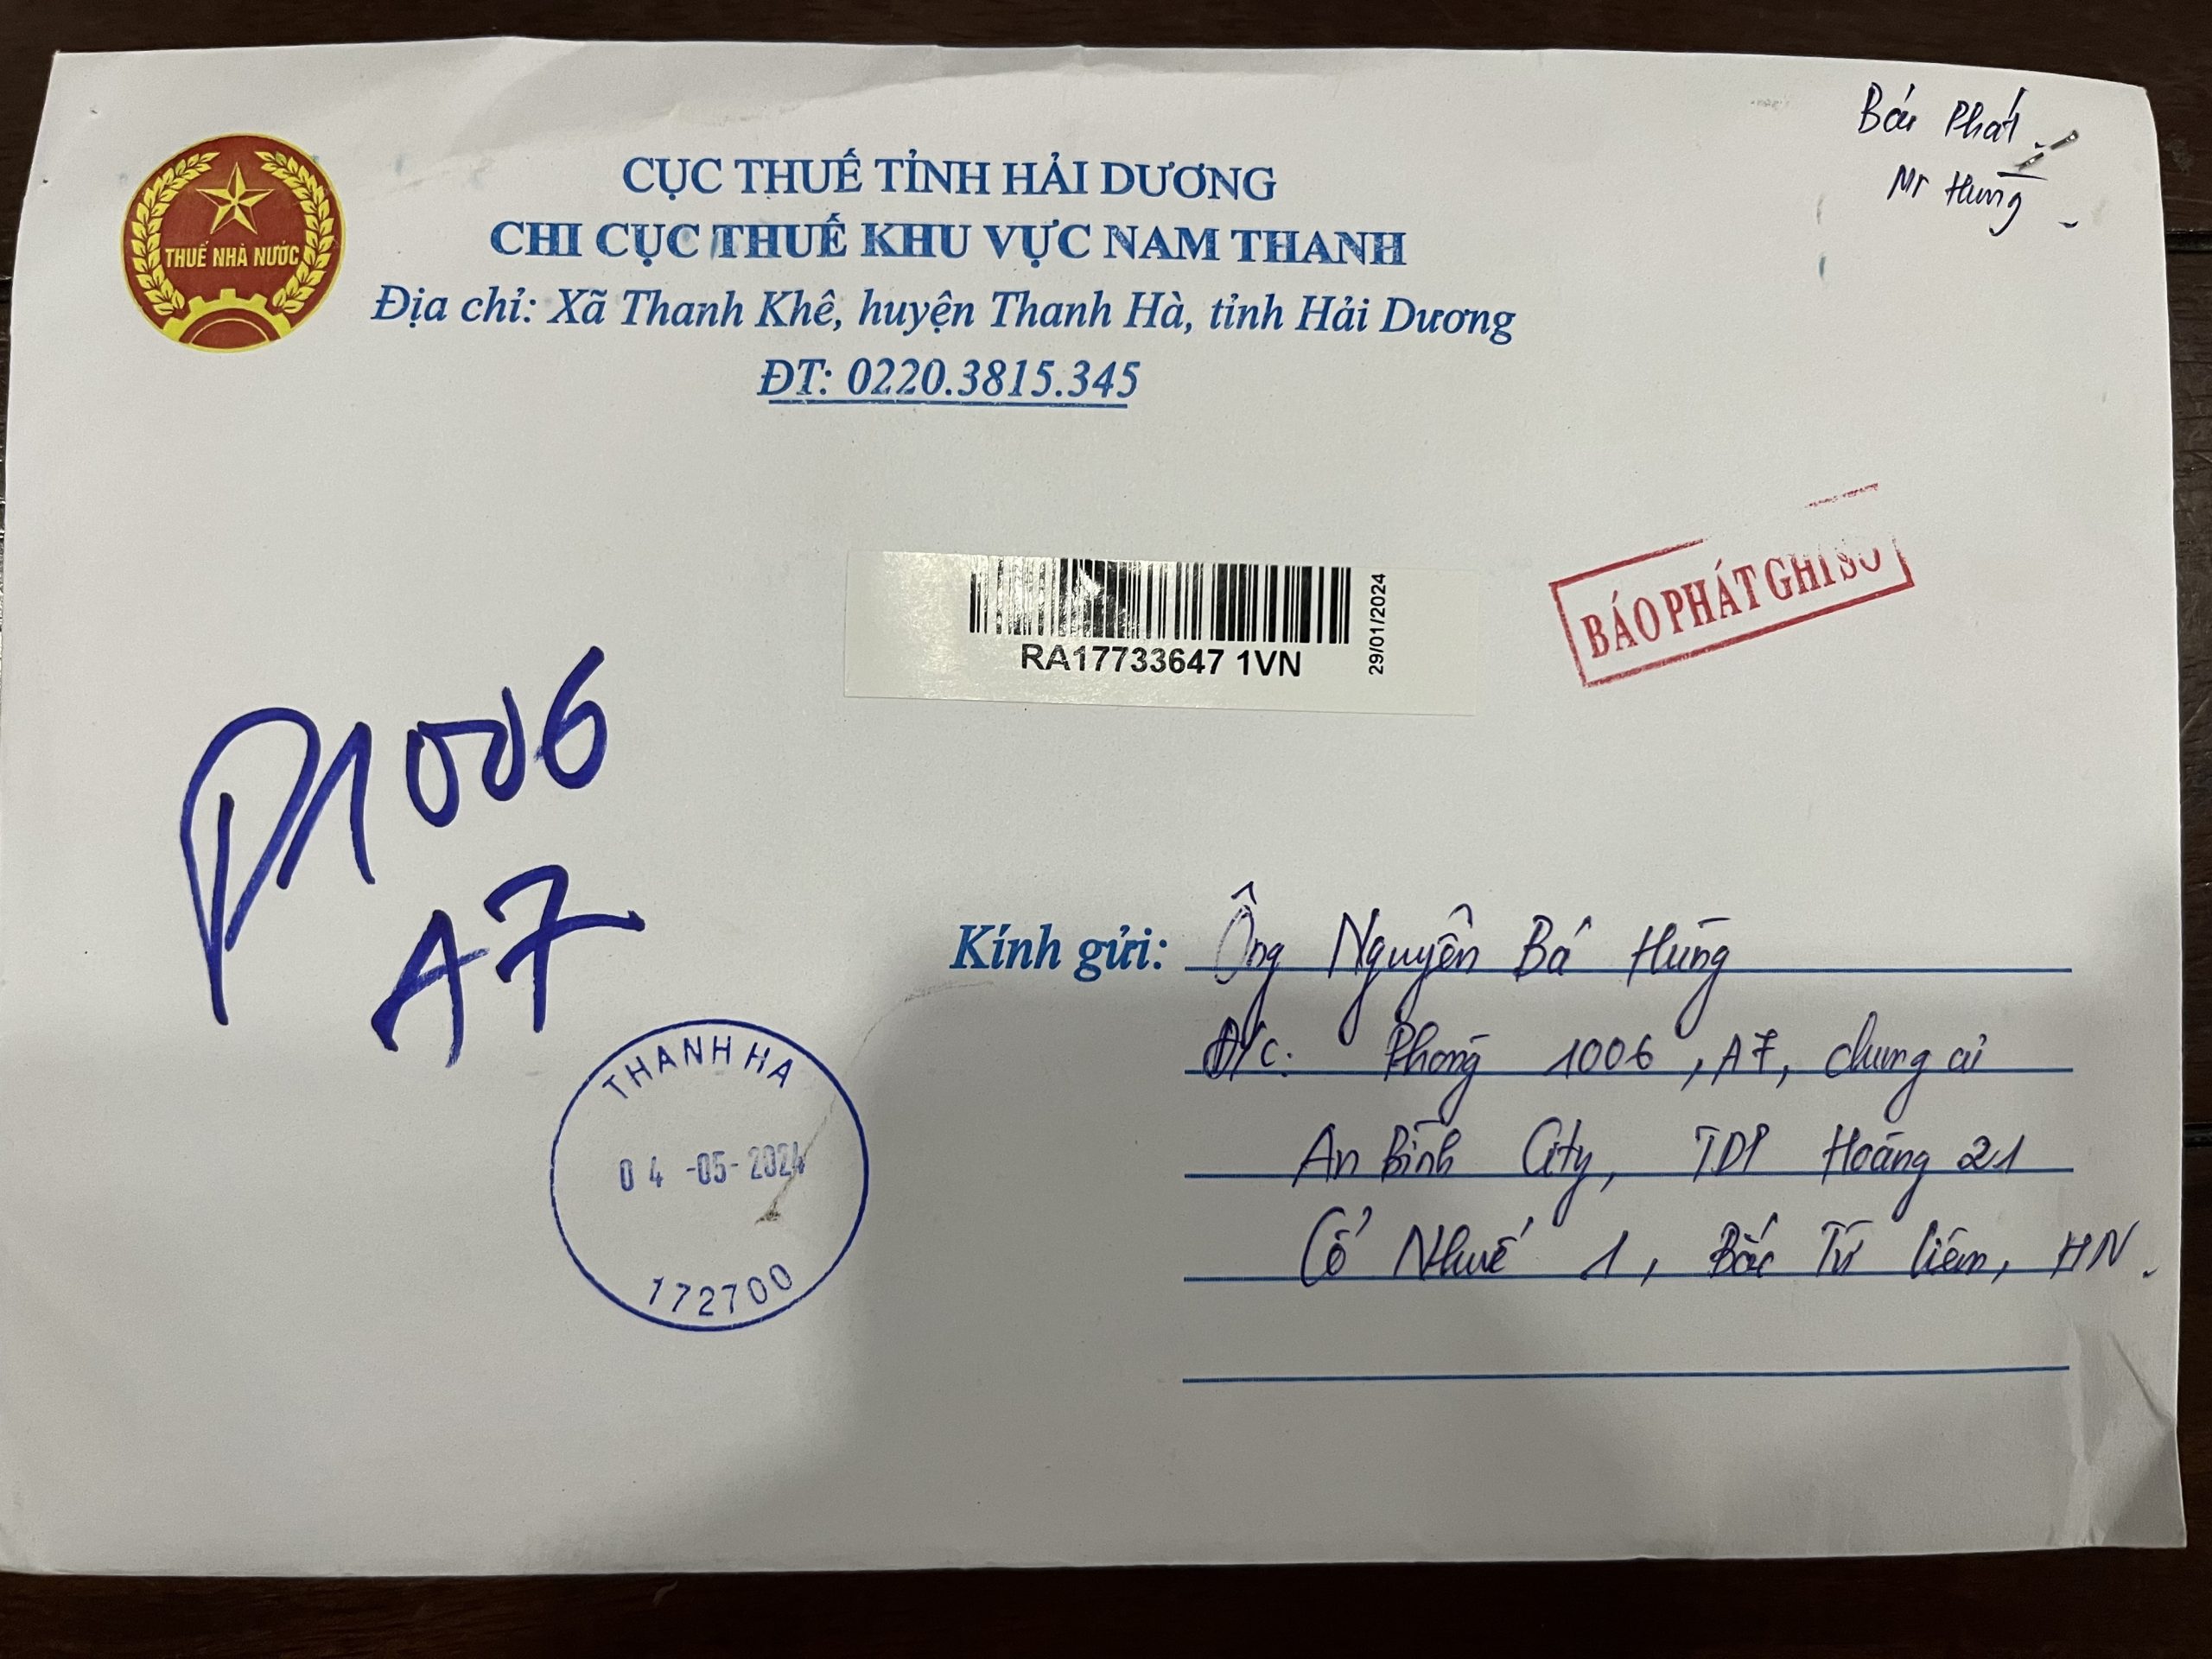 Báo Phát
Mr Hưng
THUẾ NHÀ NƯỚC
CỤC THUẾ TỈNH HẢI DƯƠNG
CHI CỤC THUẾ KHU VỰC NAM THANH
Địa chỉ: Xã Thanh Khê, huyện Thanh Hà, tỉnh Hải Dương
ĐT: 0220.3815.345
RA17733647 1VN
29/01/2024
BÁO PHÁT GHI SỐ
P1006
A7
THANH HA
04 -05- 2024
172700
Kính gửi: Ông Nguyễn Bá Hùng
Đ/c: Phòng 1006, A7, chung cư
An Bình City, TDP Hoàng 21
Cổ Nhuế 1, Bắc Từ Liêm, HN.